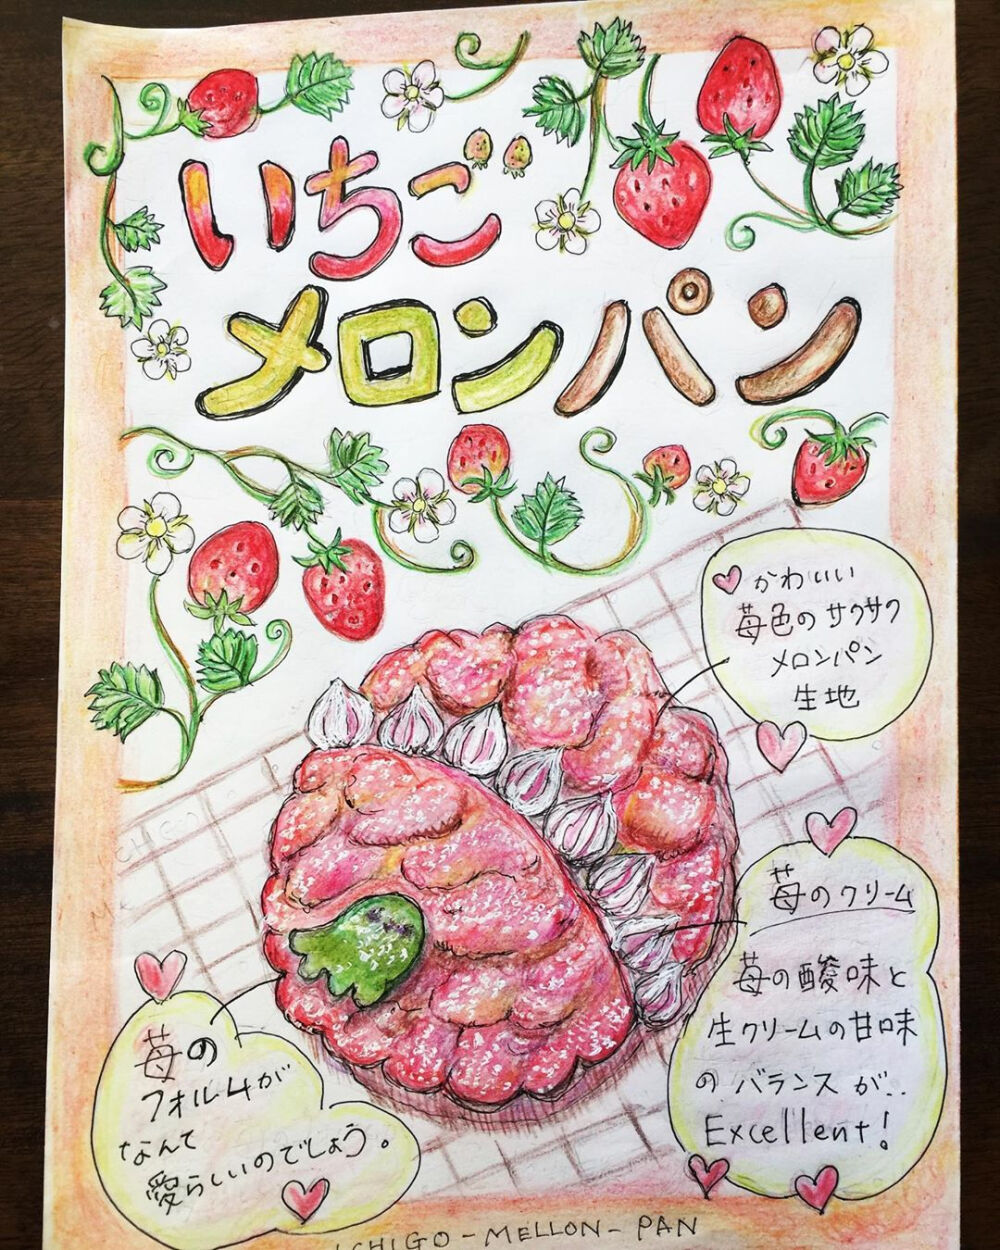 いちご
メロンパン
かわいい
苺色のサクサク
メロンパン
生地
苺のクリーム
苺の酸味と
生クリームの甘味
のバランスが..
Excellent!
苺の
フォルムが
なんて
愛らしいのでしょう。
ICHIGO-MELLON-PAN